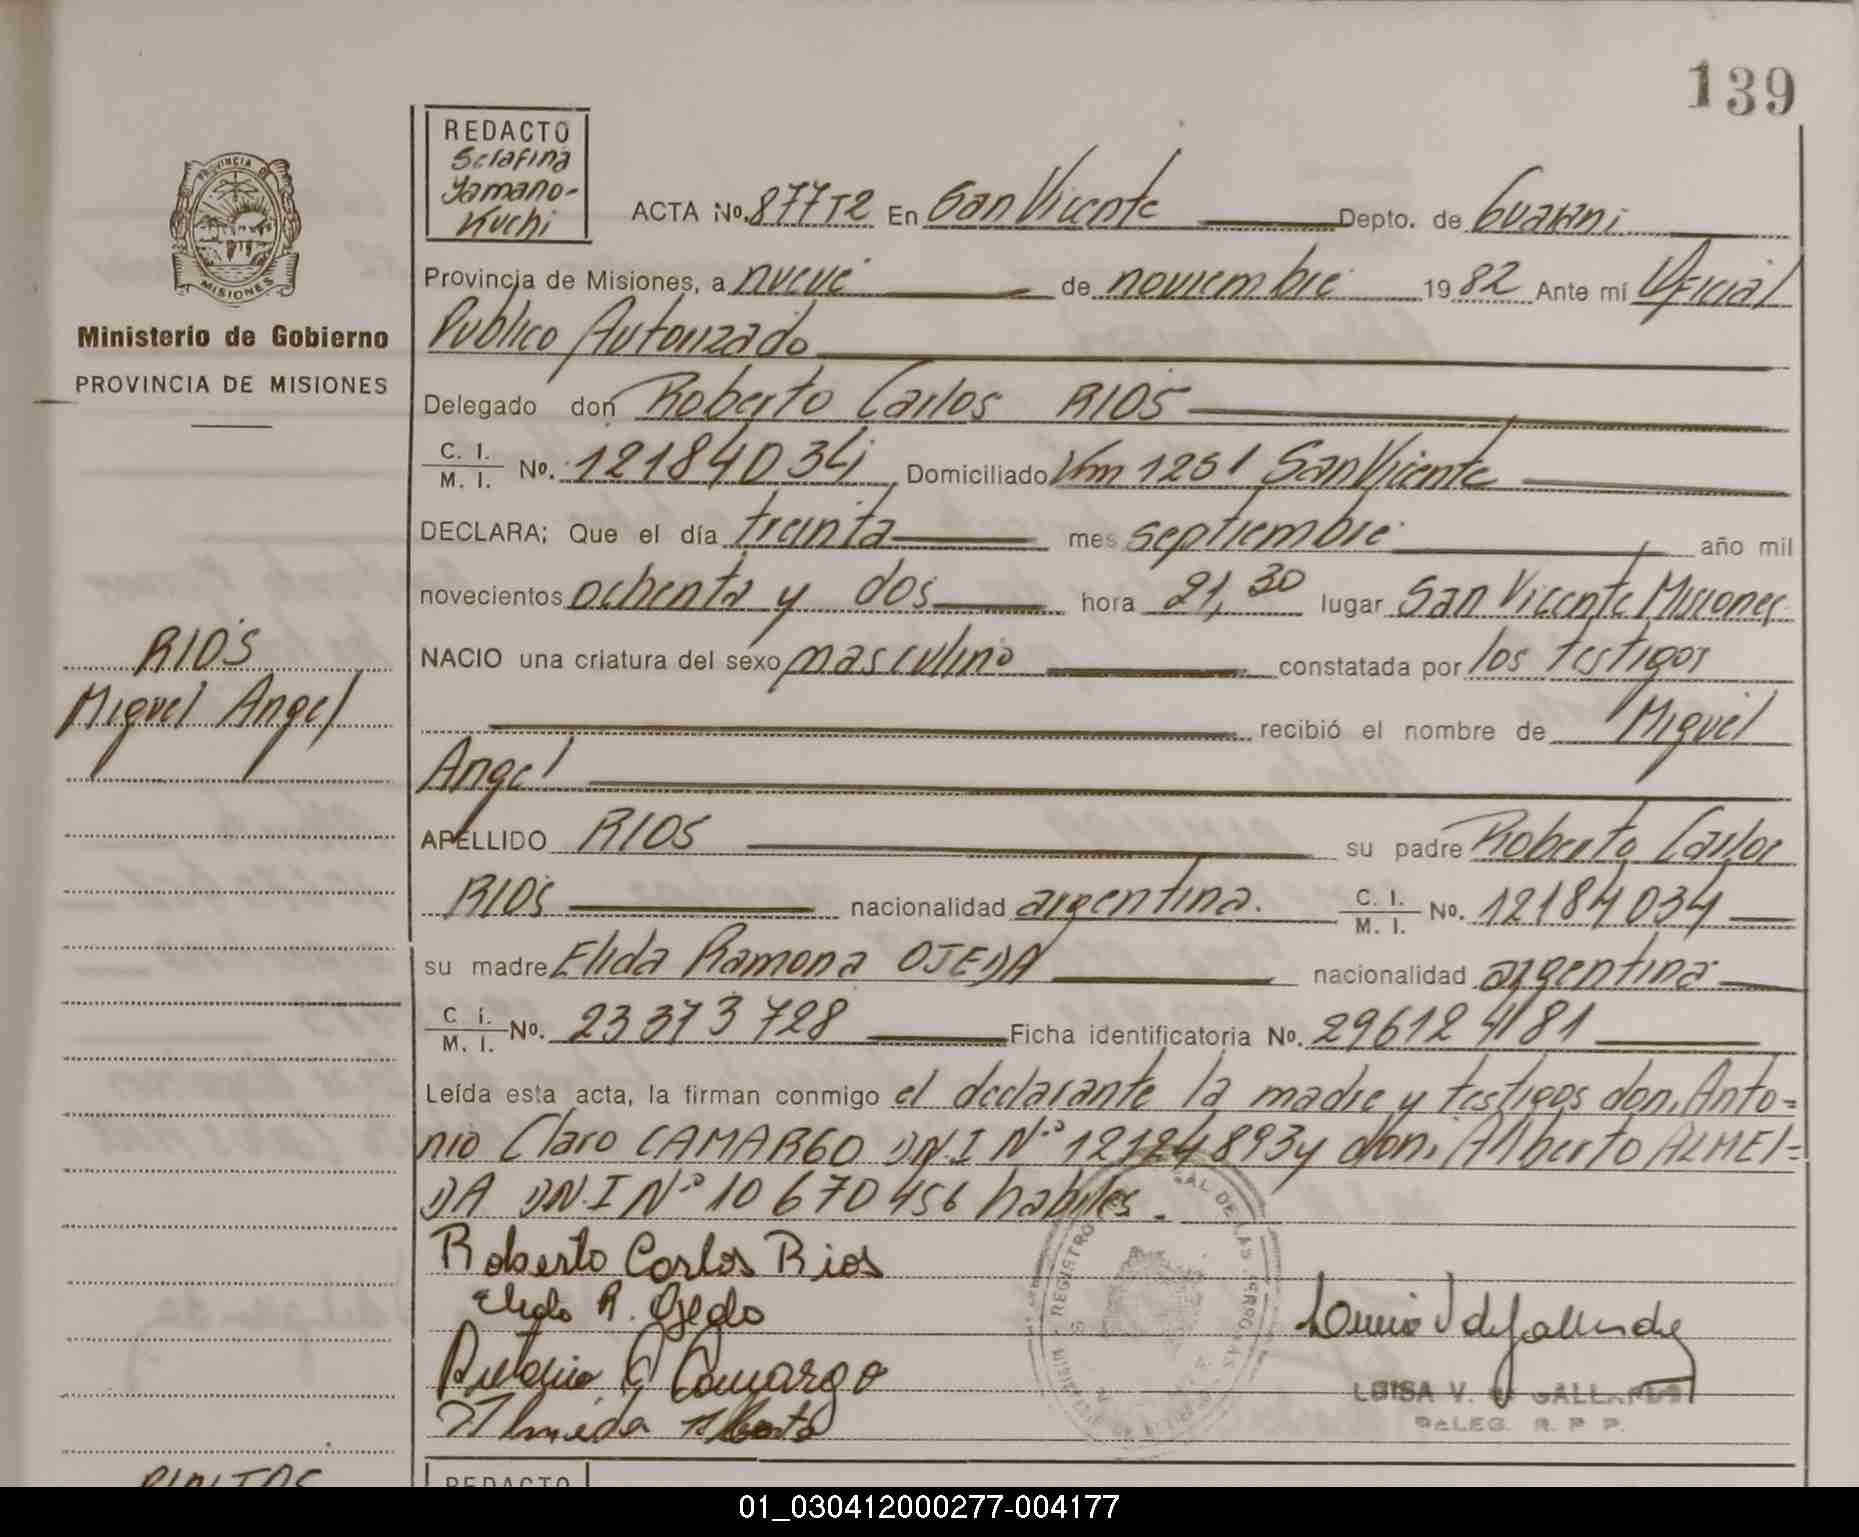 139
REDACTO
Serafina
Yamano-
Kuchi
PROVINCIA DE
MISIONES
Ministerio de Gobierno
PROVINCIA DE MISIONES
RIOS
Miguel Angel
ACTA No. 877T2 En San Vicente Depto. de Guarani
Provincia de Misiones, a nueve de noviembre 1982 Ante mí Oficial
Publico Autorizado
Delegado don Roberto Carlos RIOS
C. I. / M. I. No. 12184034 Domiciliado Km 1251 San Vicente
DECLARA; Que el día treinta mes septiembre año mil
novecientos ochenta y dos hora 21,30 lugar San Vicente Misiones
NACIO una criatura del sexo masculino constatada por los testigos
recibió el nombre de Miguel
Angel
APELLIDO RIOS su padre Roberto Carlos
RIOS nacionalidad argentina. C. I. / M. I. No. 12184034
su madre Elida Ramona OJEDA nacionalidad argentina
C i. / M. I. No. 23373728 Ficha identificatoria No. 296124181
Leída esta acta, la firman conmigo el declarante la madre y testigos don, Anto=
nio Claro CAMARGO DN.I Nº 12124893 y don, Alberto ALMEI=
DA DN.I Nº 10670456 habiles.
Roberto Carlos Rios
Elida R. Ojeda
Antonio C Camargo
Almeida Alberto
REGISTRO DE LAS PERSONAS
LUISA V. GALLARDO
DELEG. R. P. P.
REDACTO
01_030412000277-004177